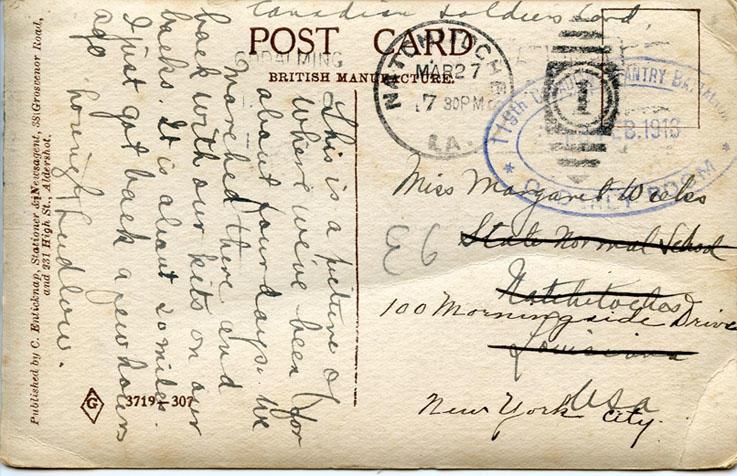 Canadian Soldiers Card,
POST CARD
GODALMING
BRITISH MANUFACTURE.
NATCHITOCHES
MAR 27
7 30PM
LA.
1
119th CANADIAN INFANTRY BATTALION
FEB. 1918
ORDERLY ROOM
This is a picture of
where we've been for
about four days. We
marched there and
back with our kits on our
backs. It is about 20 miles.
I just got back a few hours
ago
Ludlow.
Miss Margaret Weeks
State Normal School
Natchitoches
100 Morningside Drive
Louisiana
USA
New York City.
Published by C. Enticknap, Stationer & Newsagent, 38 Grosvenor Road,
and 231 High St., Aldershot.
G
3719—307